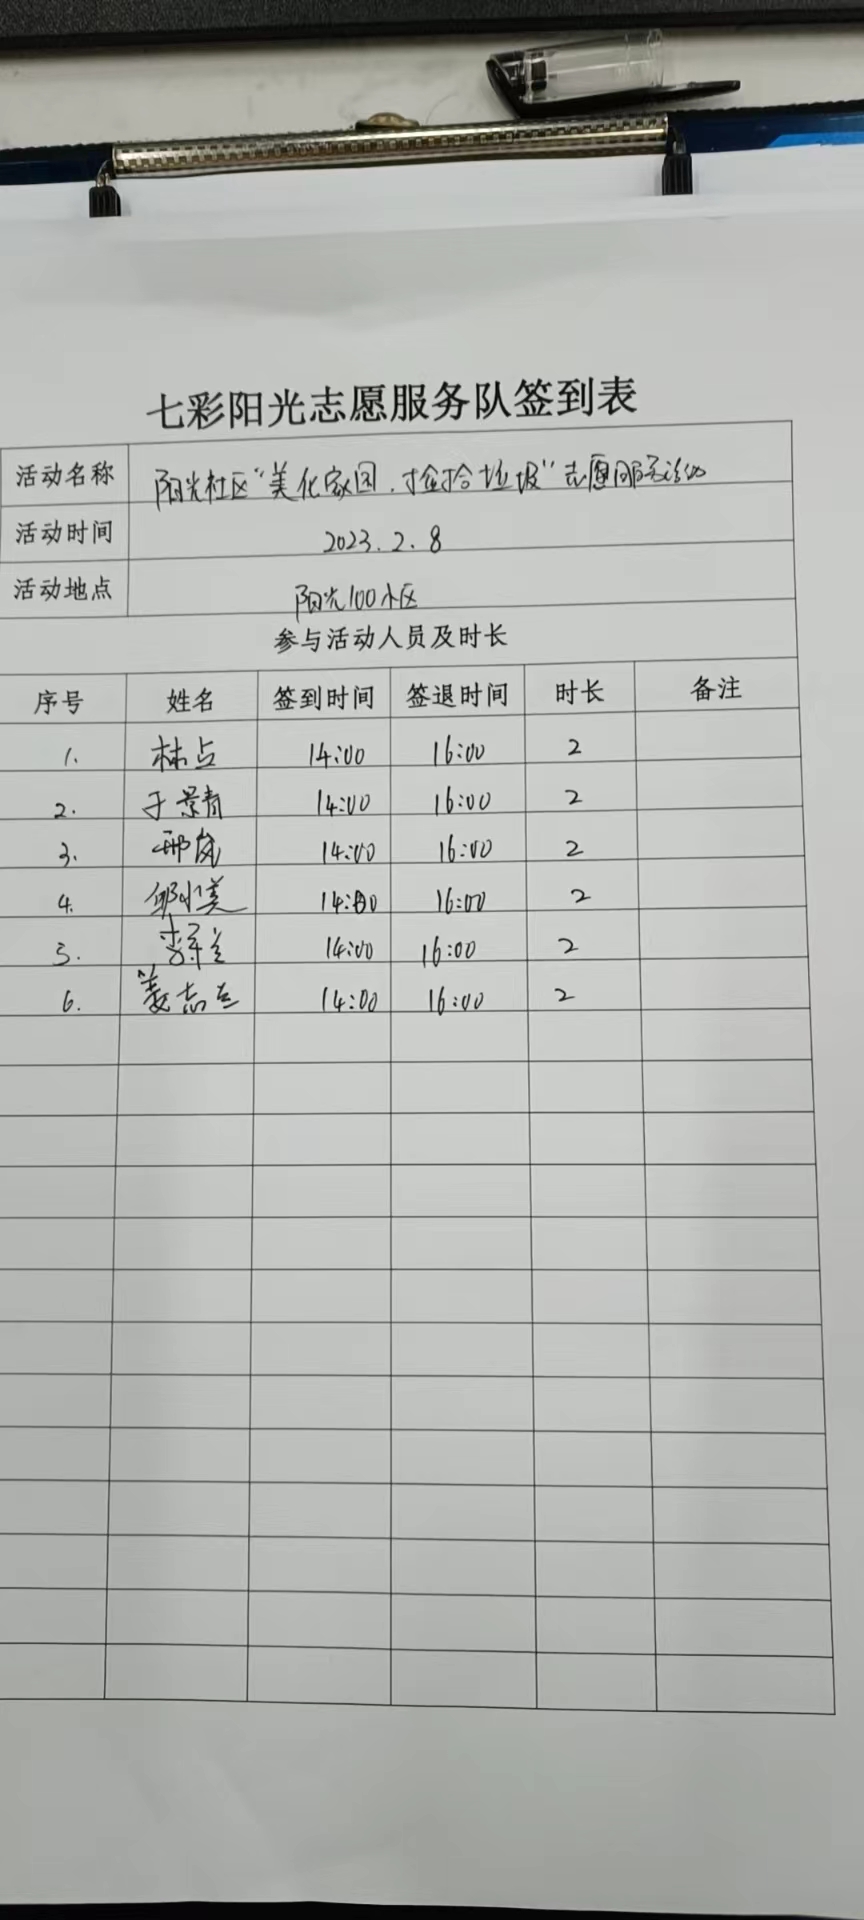 七彩阳光志愿服务队签到表
活动名称 阳光社区“美化家园,捡拾垃圾”志愿服务活动
活动时间 2023.2.8
活动地点 阳光100小区
参与活动人员及时长
序号 姓名 签到时间 签退时间 时长 备注
1. 林占 14:00 16:00 2
2. 于景青 14:00 16:00 2
3. 邢岚 14:00 16:00 2
4. 邹小美 14:00 16:00 2
5. 14:00 16:00 2
6. 姜志兰 14:00 16:00 2